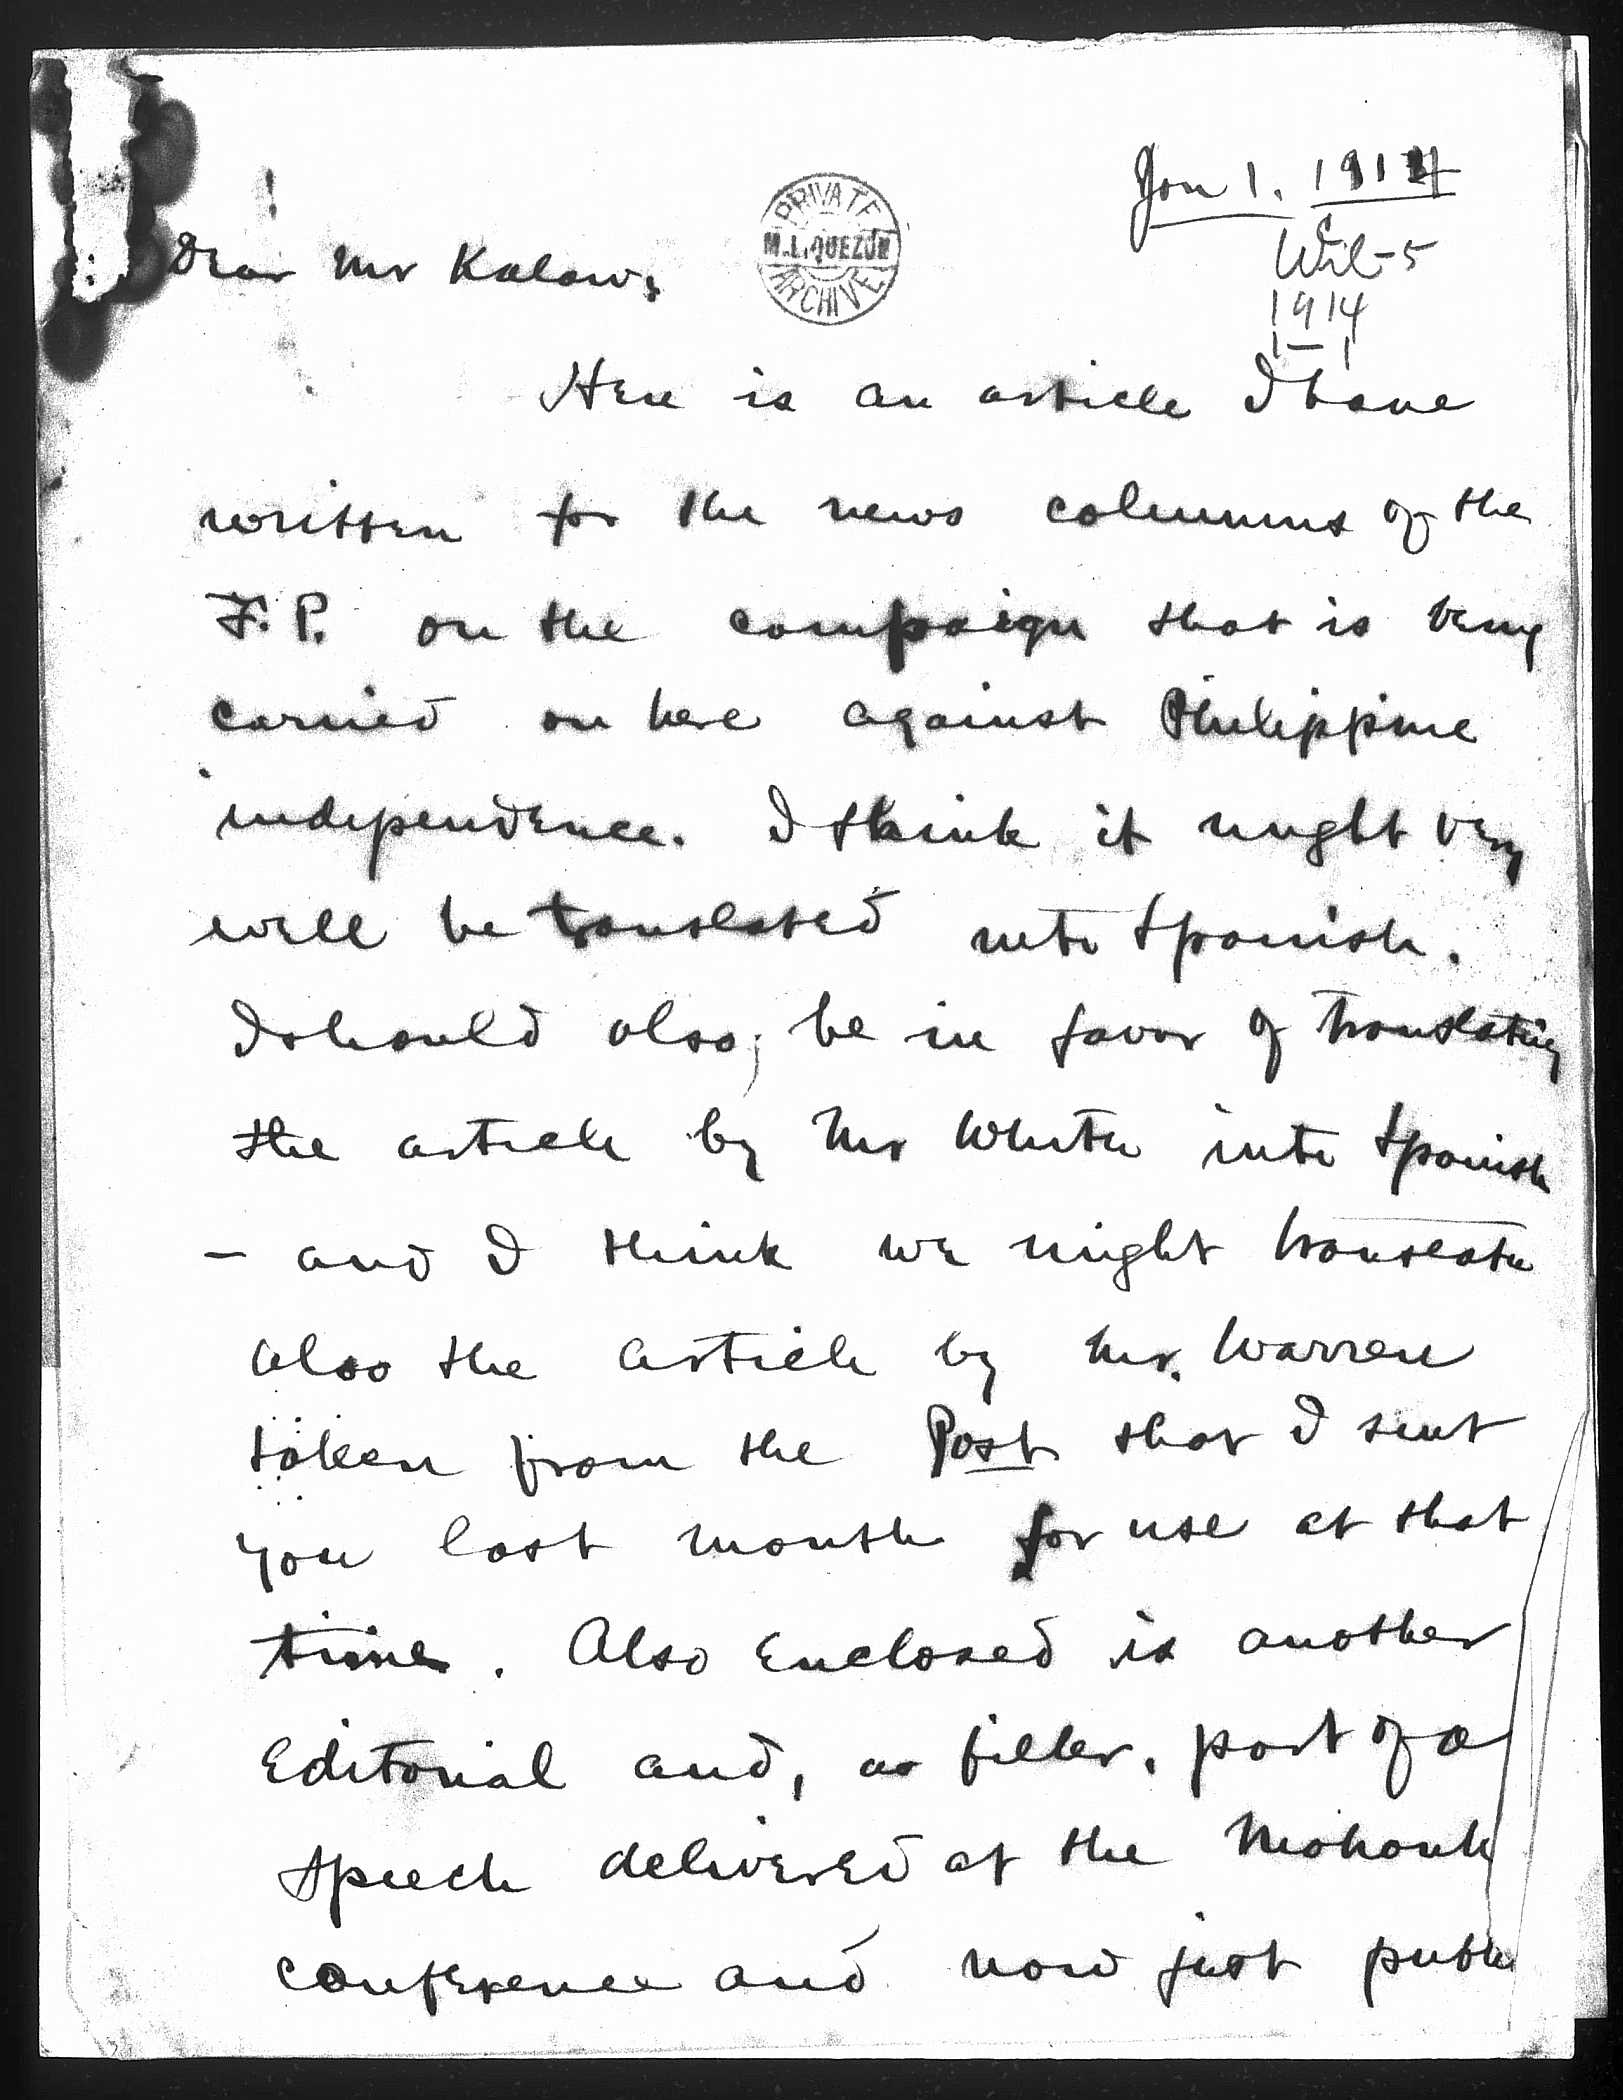 Jan 1. 1914
PRIVATE
M.L. QUEZON
ARCHIVE
Wil-5
1914
1-1
Dear Mr Kalaw:
Here is an article I have
written for the news columns of the
F.P. on the campaign that is being
carried on here against Philippine
independence. I think it might very
well be translated into Spanish.
I should also, be in favor of translating
the article by Mr White into Spanish
- and I think we might translate
also the article by Mr. Warren
taken from the Post that I sent
you last month for use at that
time. Also enclosed is another
Editorial and, as filler, part of a
speech delivered at the Mohonk
Conference and now just publ